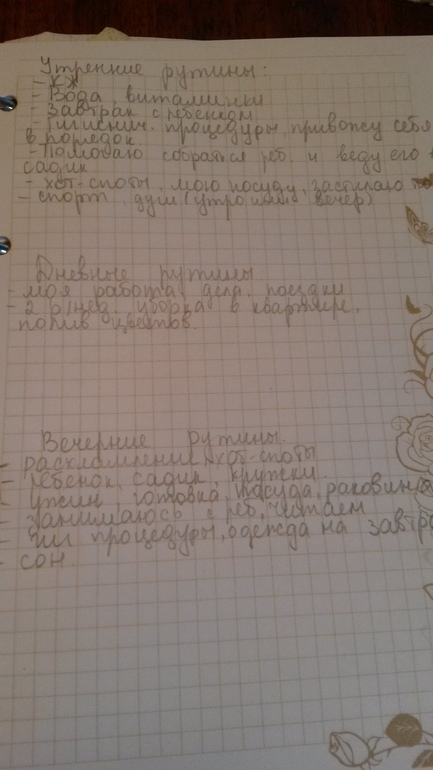 Утренние рутины:
- КЖ
- Вода, витаминки
- Завтрак с ребёнком
- Гигиенич. процедуры, привожу себя
в порядок
- Помогаю собраться реб. и веду его в
садик
- хот-споты, мою посуду, застилаю
- спорт, душ (утро или вечер)
Дневные рутины
- моя работа, дела, поездки
- 2 р/нед. уборка в квартире,
полив цветов.
Вечерние рутины.
- расхламление, хот-споты
- ребенок, садик, кружки
- ужин, готовка, посуда, раковина
- занимаюсь с реб, читаем
- процедуры, одежда на завтра
- сон.